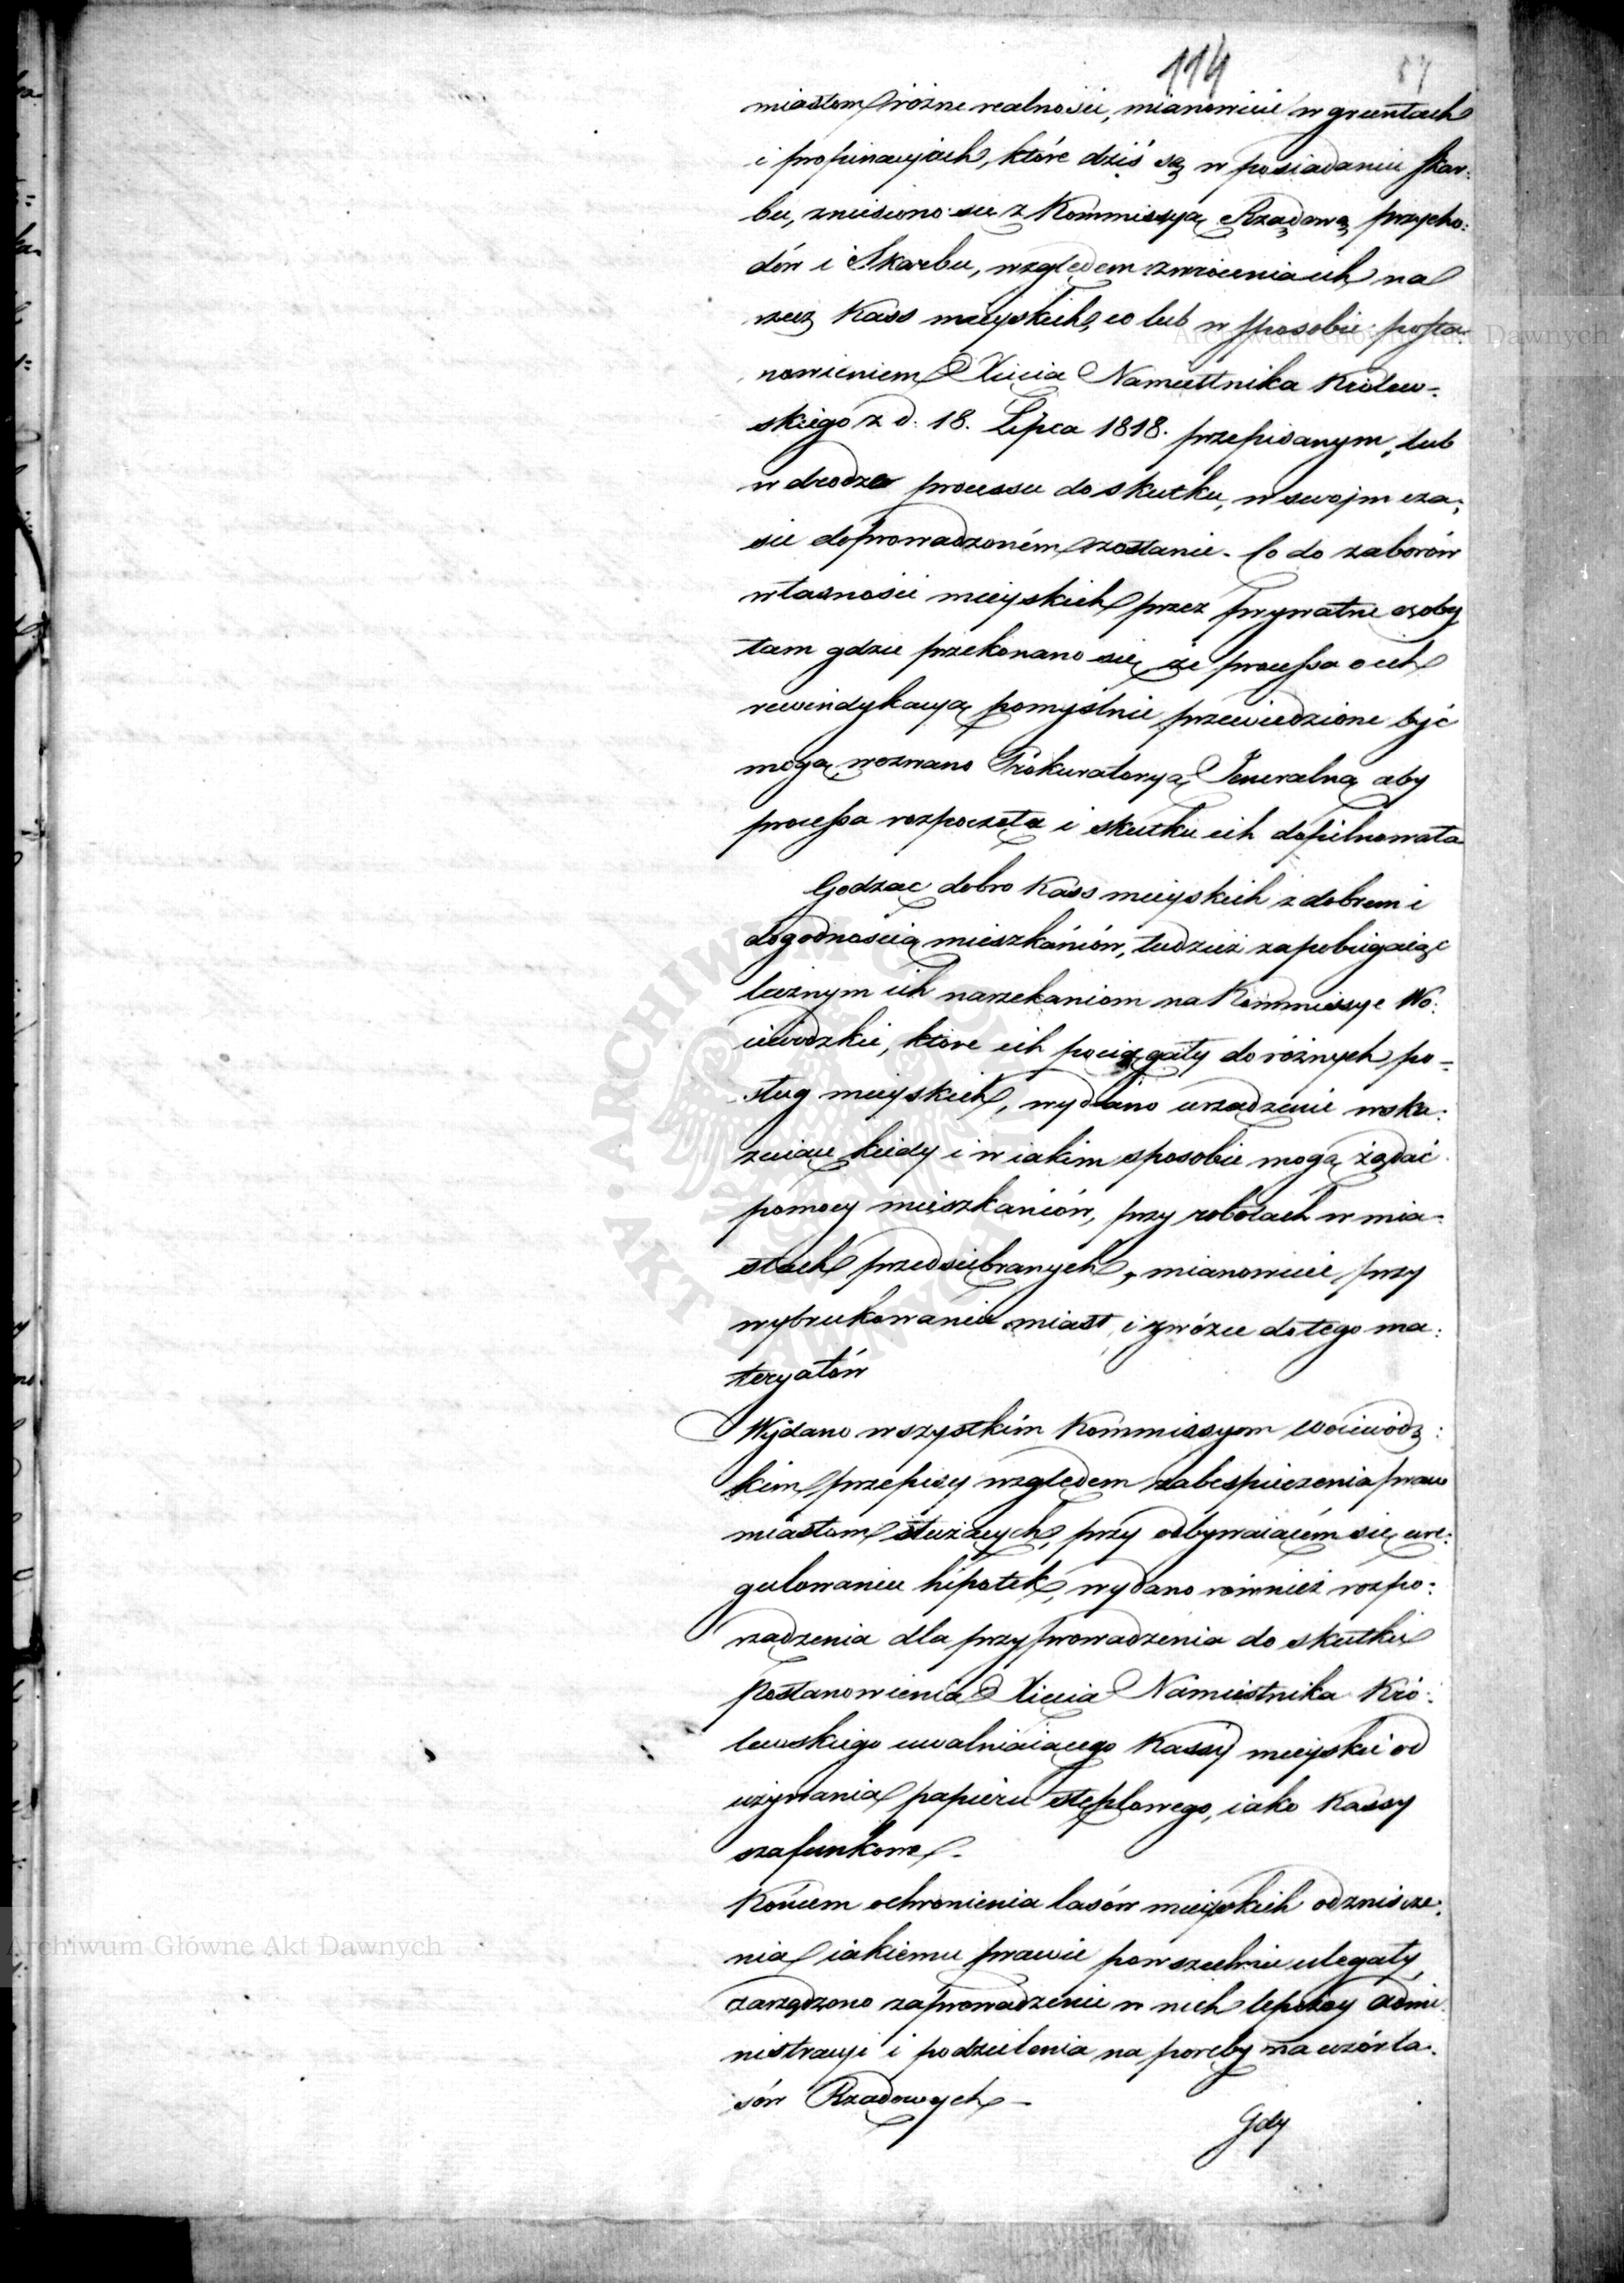 114
57
miastom różne realności, mianowicie w gruntach
i propinacyjach, które dziś są w posiadaniu Skar:
bu, zniesiono sie z Kommissyą Rządową przycho:
dów i Skarbu, względem zwrócenia ich na
rzecz Kass mieyskich, co lub w sposobie posta
nowieniem Xięcia Namiestnika Królew-
skiego z d: 18. Lipca 1818. przepisanym, lub
w drodze processu do skutku, w swojm cza:
sie doprowadzoném zostanie. Co do zaborów
własności mieyskich przez prywatne osoby
tam gdzie przekonano się że processa o ich
rewindykacyą pomyślnie przewiedzione być
mogą wezwano Prokuratoryą Jeneralną aby
processa rozpoczęła i skutku ich dopilnowała
Godząc dobro Kass mieyskich z dobrem i
dogodnością mieszkańców, tudzież zapobiegaiąc
licznym ich narzekaniom na Kommissye Wo:
iewodzkie, które ich pociągały do różnych po-
sług mieyskich, wydano urządzenie wska:
zuiące kiedy i w iakim sposobie mogą żądać
pomocy mieszkańców, przy robotach w mia-
stach przedsiębranych, mianowicie przy
wybrukowaniu miast, i zwózce do tego ma:
teryałów
Wydano wszystkim Kommissyom Woiewódz:
kim przepisy względem zabespieczenia praw
miastom służących, przy odbywaiącém się ure:
gulowaniu hipotek, wydano również rozpo:
rządzenia dla przyprowadzenia do skutku
Postanowienia Xięcia Namiestnika Kró:
lewskiego uwalniaiącego Kassy mieyskie od
używania papieru stęplowego, iako Kassy
szafunkowe.
Końcem ochronienia lasów mieyskich od znisze:
nia iakiemu prawie powszechnie ulegały,
zarządzono zaprowadzenie w nich lepszey admi
nistracyi i podzielenia na poręby na wzór la:
sów Rządowych –
Gdy
Archiwum Główne Akt Dawnych
Archiwum Główne Akt Dawnych
ARCHIWUM GŁÓWNE AKT DAWNYCH